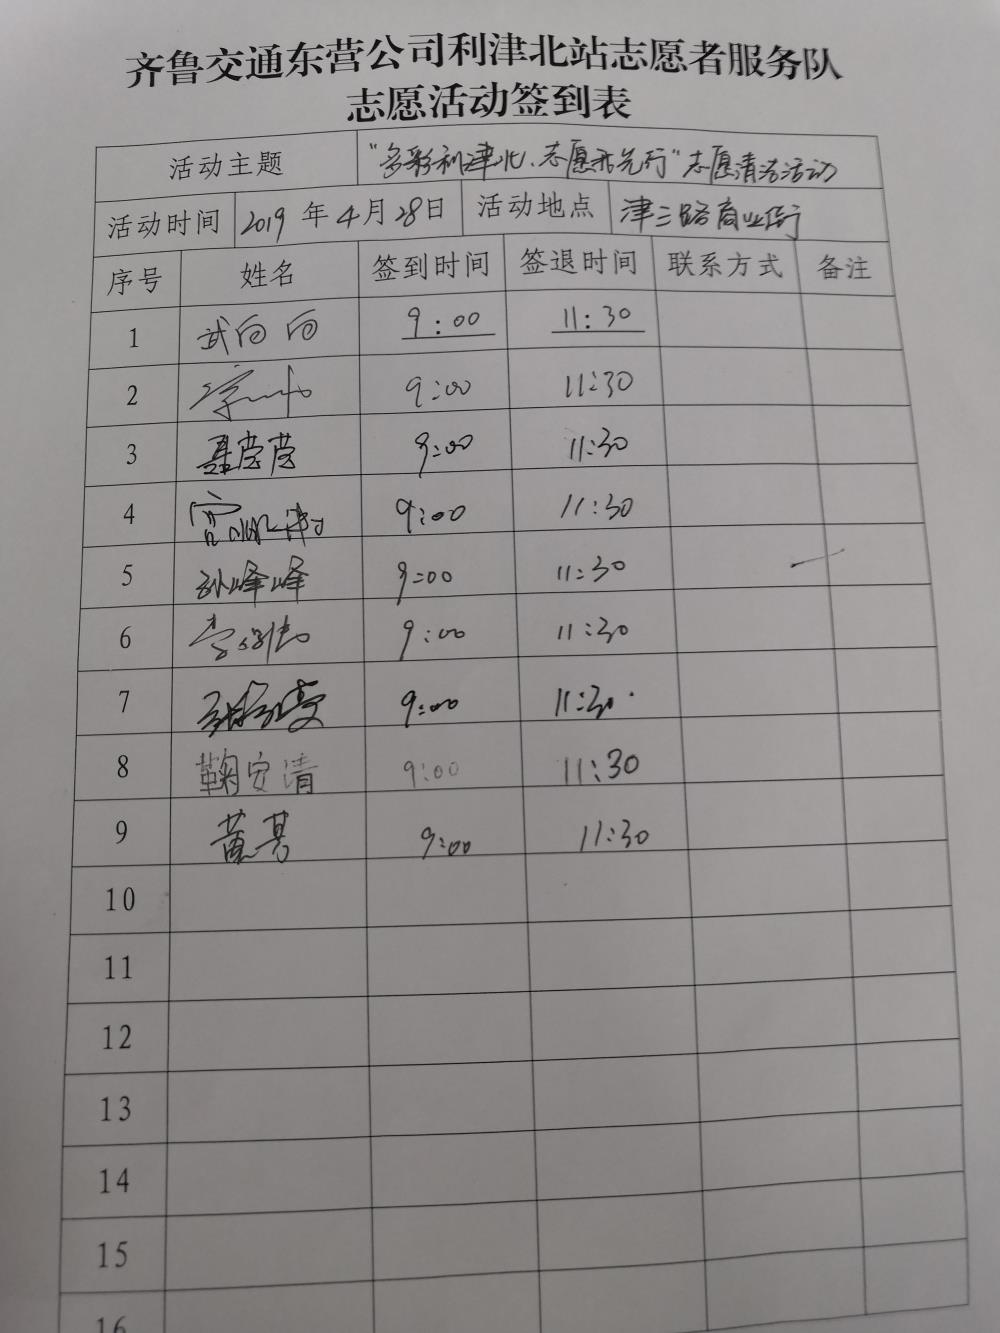 齐鲁交通东营公司利津北站志愿者服务队
志愿活动签到表
活动主题 “多彩利津北、志愿我先行”志愿清洁活动
活动时间 2019 年 4 月 28 日 活动地点 津三路商业街
序号 姓名 签到时间 签退时间 联系方式 备注
1 武向向 9:00 11:30
2 9:00 11:30
3 聂莹莹 9:00 11:30
4 9:00 11:30
5 孙峰峰 9:00 11:30
6 9:00 11:30
7 9:00 11:30
8 鞠安清 9:00 11:30
9 9:00 11:30
10
11
12
13
14
15
16